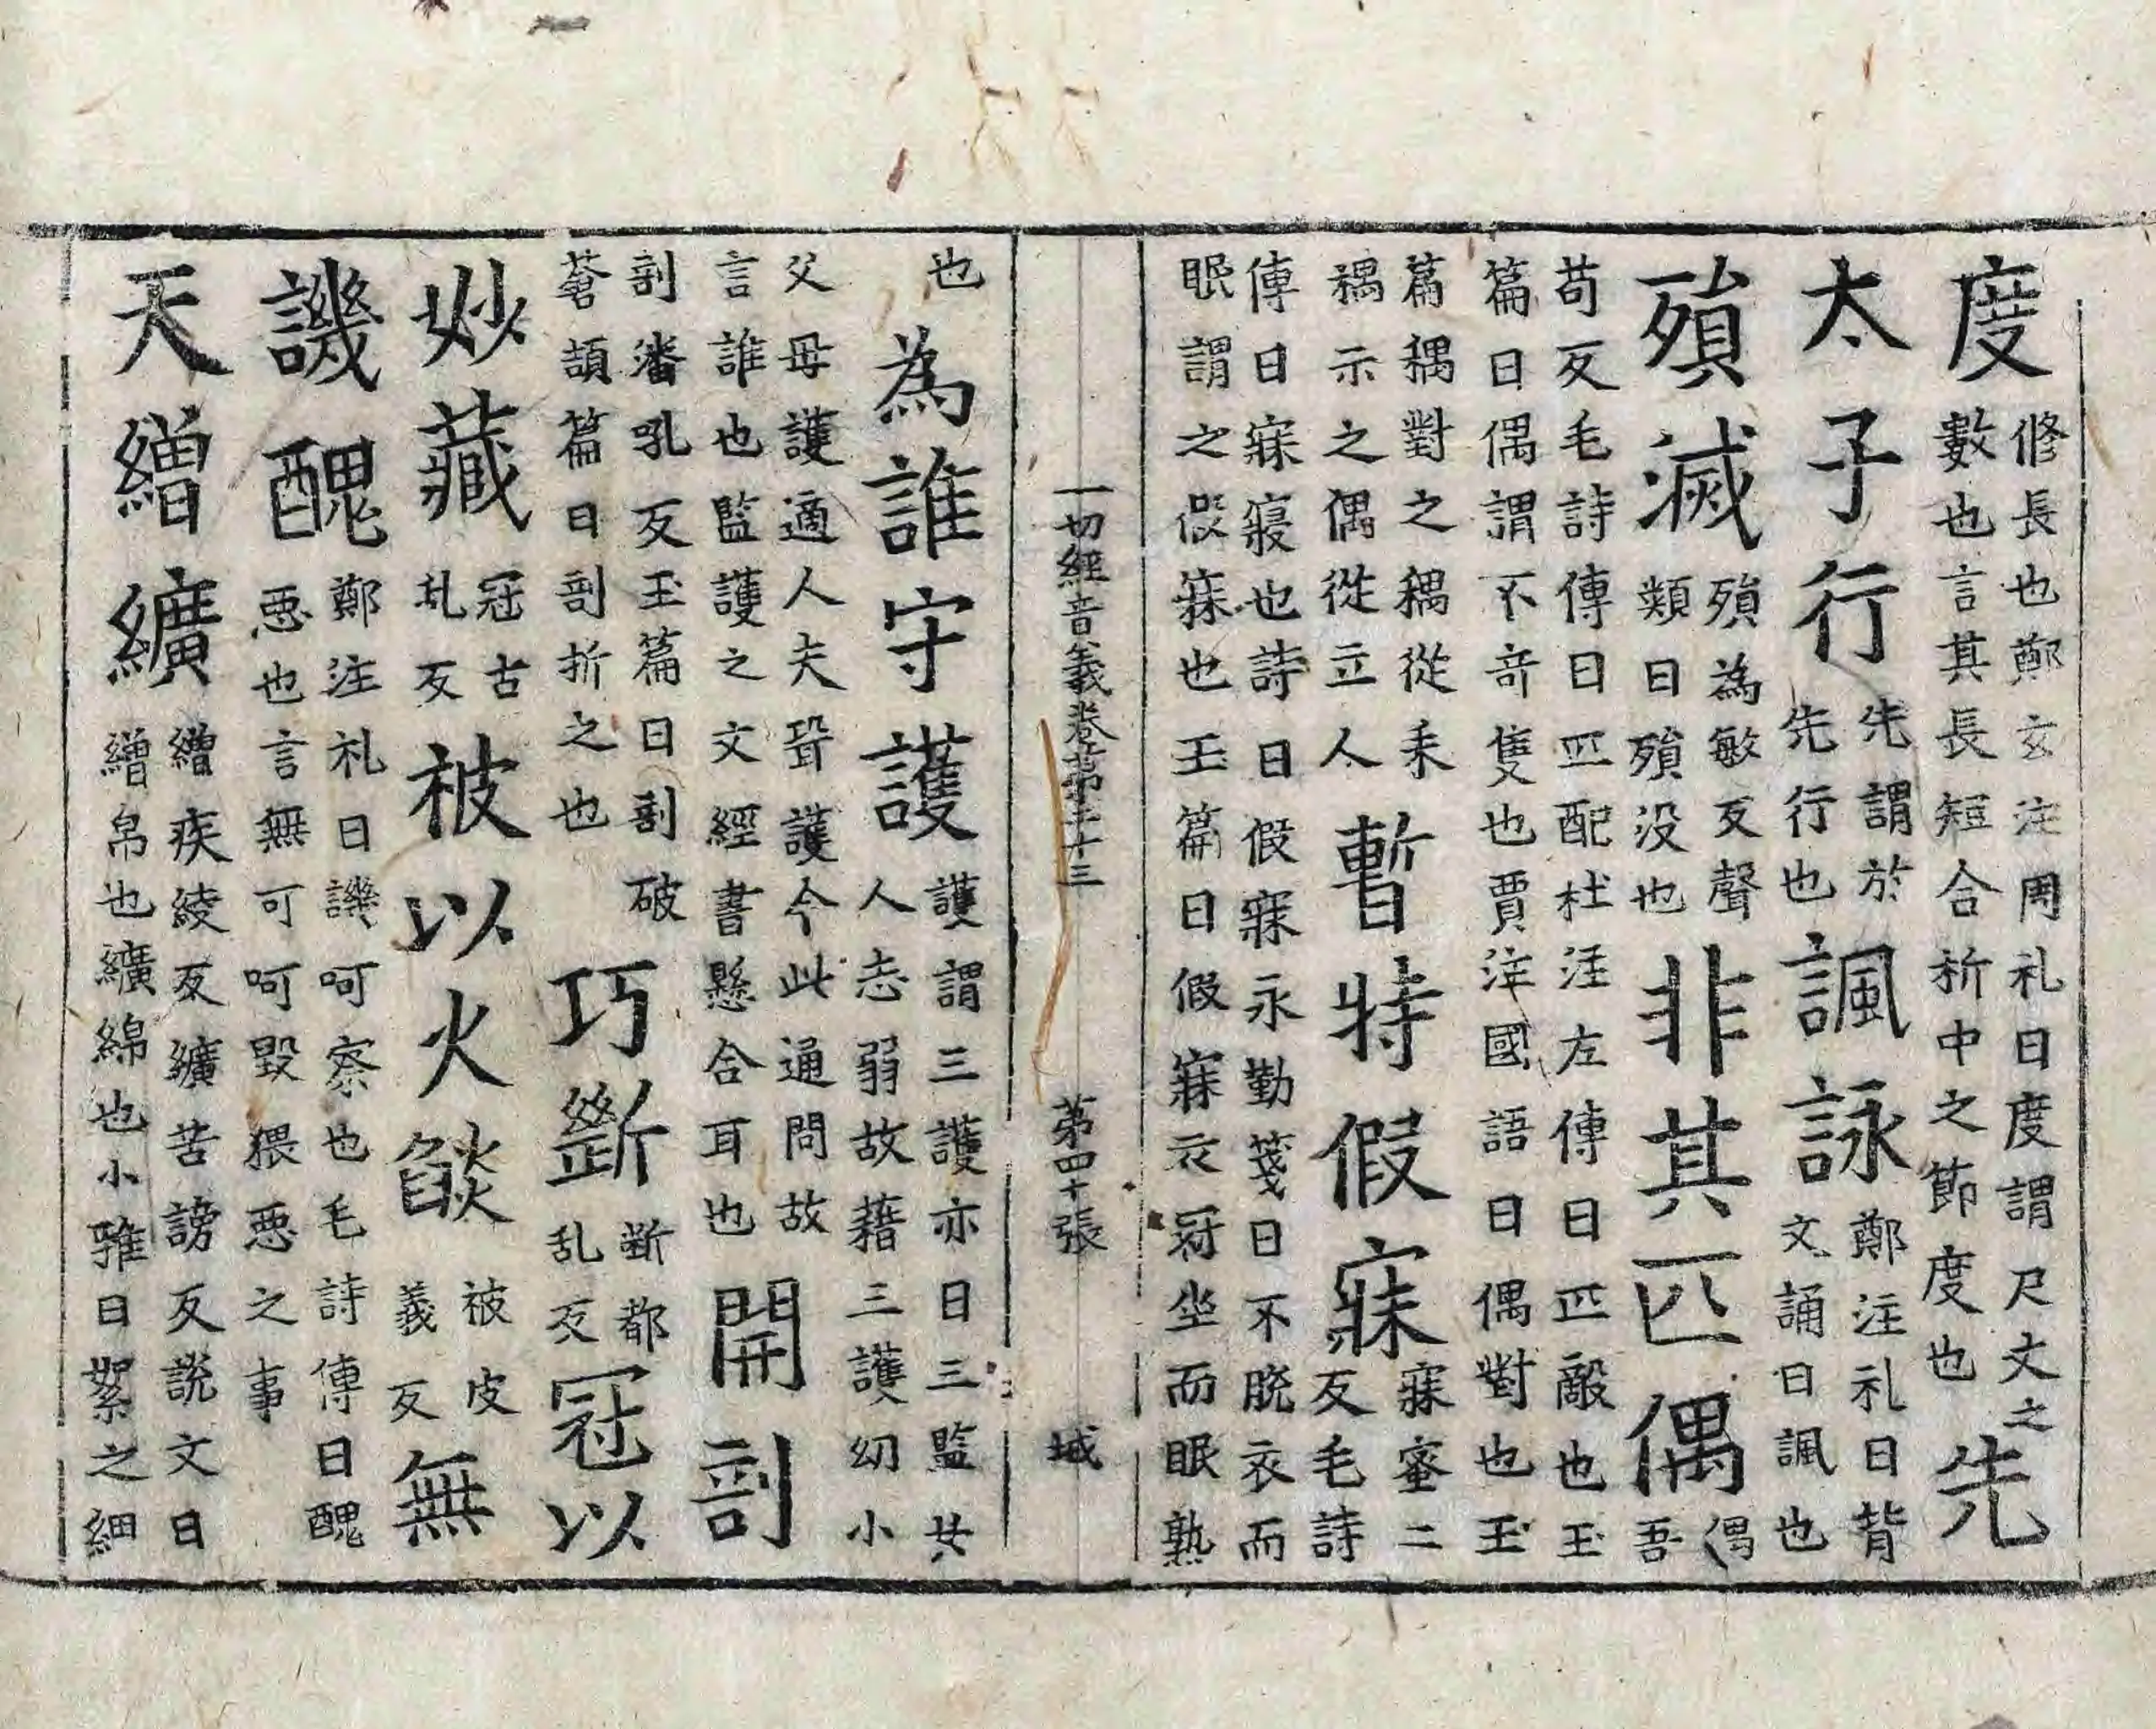 度修長也鄭玄注周礼曰度謂尺丈之數也言其長短合折中之節度也先
太子行先謂於先行也諷詠鄭注礼曰背文誦曰諷也
殞滅殞為敏反聲類曰殞没也非其匹偶偶吾
苟反毛詩傳曰匹配杜注左傳曰匹敵也玉篇曰偶謂不竒隻也賈注國語曰偶對也玉
篇耦對之耦從耒耦示之偶從立人暫特假寐寐蜜二反毛詩
傳曰寐寢也詩曰假寐永勤箋曰不脫衣而眠謂之假寐也玉篇曰假寐衣冠坐而眠熟
一切經音義卷第三十三　第四十張　城
也為誰守護護謂三護亦曰三監共人恙弱故藉三護幼小
父母護適人夫聟護今此通問故言誰也監護之文經書懸合耳也開剖
剖潘吼反玉篇曰剖破蒼頡篇曰剖折之也巧斷斷都乱反冠以
妙藏冠古乱反被以火燄被皮義反無
譏醜鄭注礼曰譏呵察也毛詩傳曰醜惡也言無可呵毀猥惡之事
天繒纊繒疾綾反纊苦謗反說文曰繒帛也纊綿也小雅曰絮之細